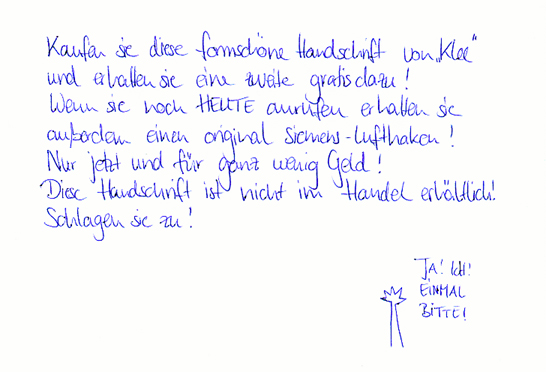 Kaufen sie diese formschöne Handschrift von „Klee“
und erhalten sie eine zweite gratis dazu!
Wenn sie noch HEUTE anrufen erhalten sie
außerdem einen original Siemens-Lufthaken!
Nur jetzt und für ganz wenig Geld!
Diese Handschrift ist nicht im Handel erhältlich!
Schlagen sie zu!
JA! Ich!
EINMAL
BITTE!